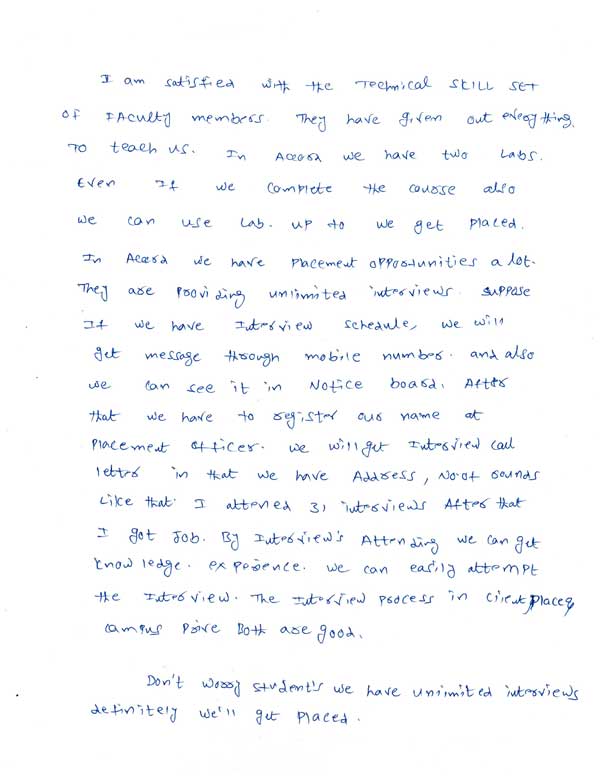 I am satisfied with the Technical SKILL SET
OF FAculty members. They have given out everything.
TO teach us. In Accord we have two Labs.
Even If we complete the course also
we can use Lab. up to we get Placed.
In Accord we have Placement opportunities a lot.
They are Providing unlimited interviews. Suppose
If we have Interview schedule, we will
get message through mobile number. and also
we can see it in Notice board. After
that we have to register our name at
Placement officer. we will get Interview call
letter in that we have Address, No.of rounds
Like that. I attened 31 interviews After that
I got Job. By Interview's Attending we can get
knowledge. experience. we can easily attempt
the Interview. The Interview process in client place,
campus Both are good.

Don't worry student's we have unlimited interviews
definitely we'll get Placed.